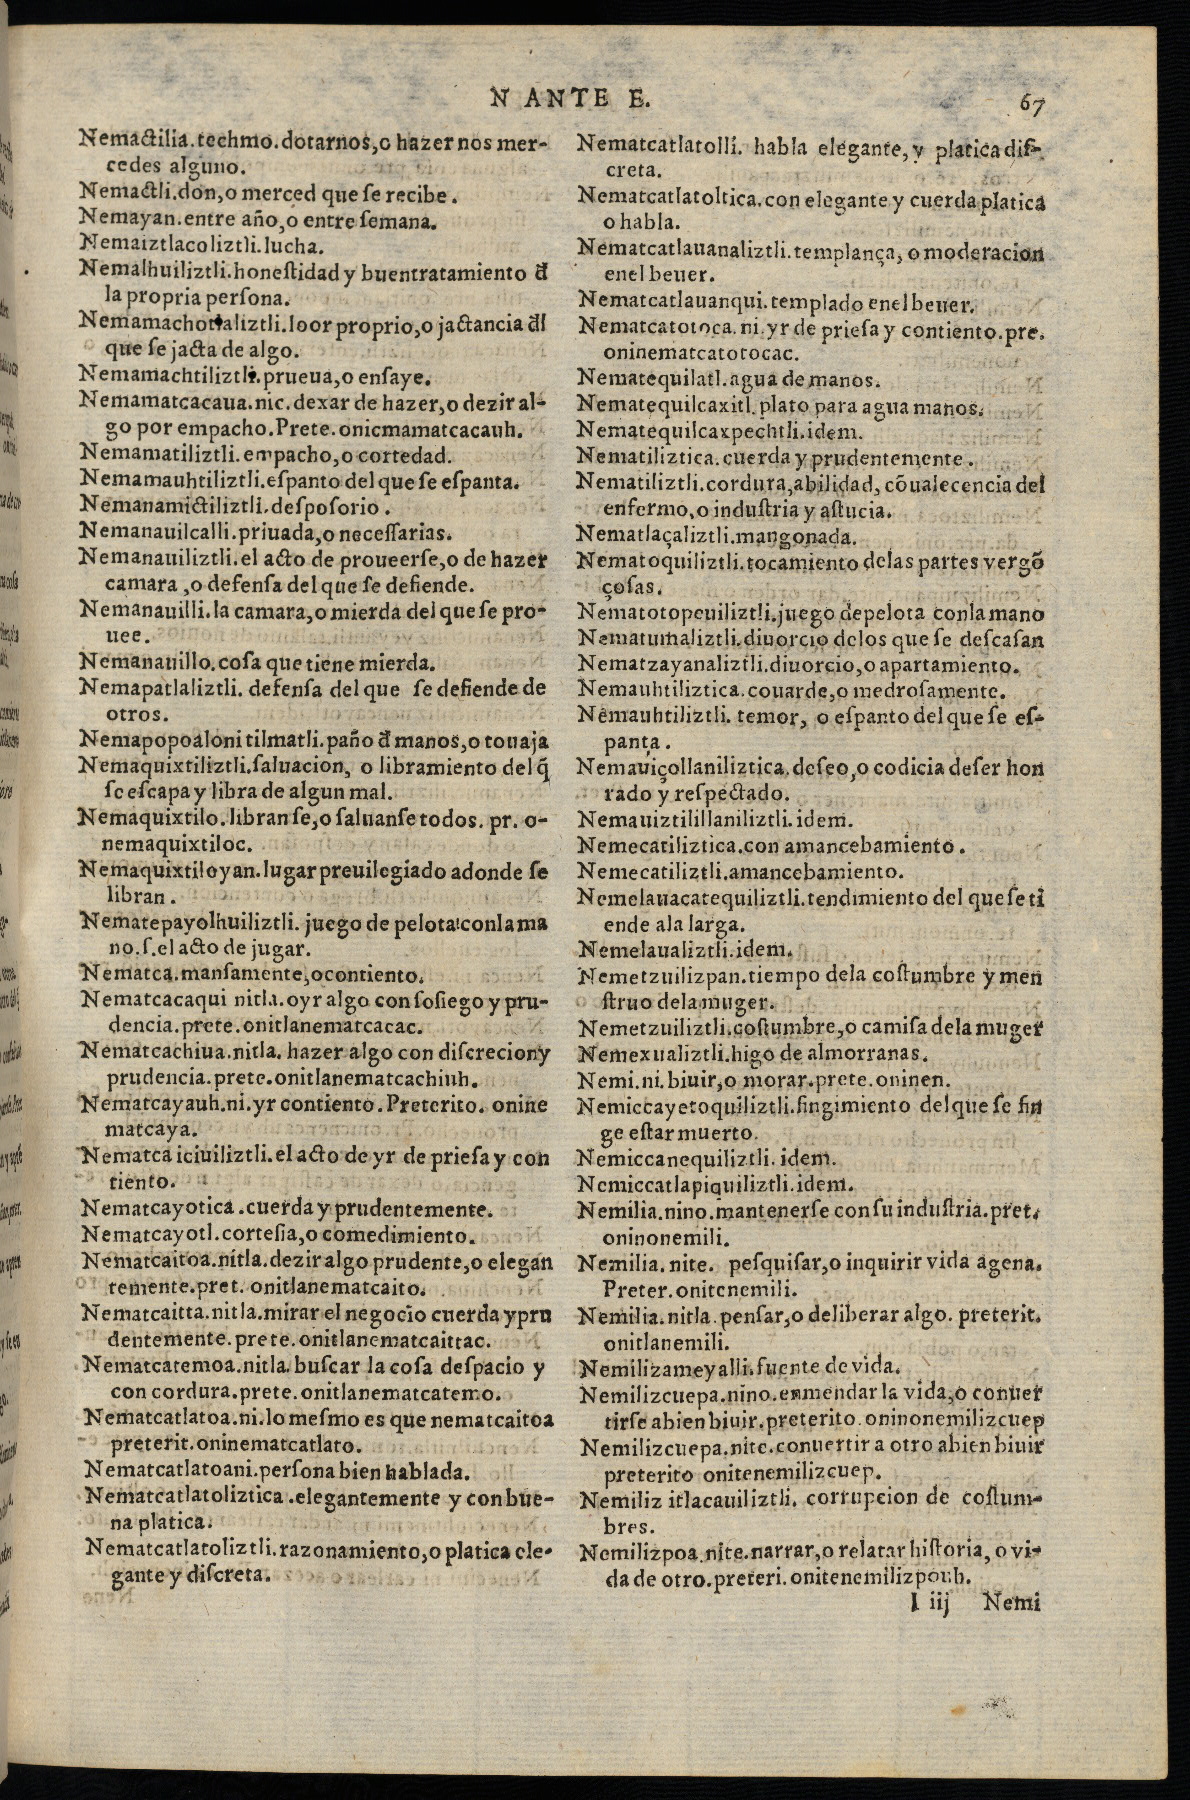 N ANTE E.
67
Nemactilia.techmo.dotarnos,o hazer nos mer-
cedes alguno.
Nemactli.don,o merced que ſe recibe.
Nemayan.entre año,o entre ſemana.
Nemaiztlacoliztli.lucha.
Nemalhuiliztli.honeſtidad y buentratamiento đ
la propria perſona.
Nemamachotializtli.loor proprio,o jactancia đl
que ſe jacta de algo.
Nemamachtiliztli.prueua,o enſaye.
Nemamatcacaua.nic.dexar de hazer,o dezir al-
go por empacho.Prete.onicmamatcacauh.
Nemamatiliztli.empacho,o cortedad.
Nemamauhtiliztli.eſpanto del que ſe eſpanta.
Nemanamictiliztli.deſpoſorio.
Nemanauilcalli.priuada,o neceſſarias.
Nemanauiliztli.el acto de proueerſe,o de hazer
camara ,o defenſa del que ſe defiende.
Nemanauilli.la camara,o mierda del que ſe pro-
uee.
Nemanauillo.coſa que tiene mierda.
Nemapatlaliztli. defenſa del que ſe defiende de
otros.
Nemapopoaloni tilmatli.paño đ manos,o touaja
Nemaquixtiliztli.ſaluacion, o libramiento del q̃
ſe eſcapa y libra de algun mal.
Nemaquixtilo.libranſe,o ſaluanſe todos. pr. o-
nemaquixtiloc.
Nemaquixtiloyan.lugar preuilegiado adonde ſe
libran.
Nematepayolhuiliztli. juego de pelota conla ma
no.ſ.el acto de jugar.
Nematca.manſamente,ocontiento.
Nematcacaqui nitla.oyr algo con ſoſiego y pru-
dencia.prete.onitlanematcacac.
Nematcachiua.nitla. hazer algo con diſcreciony
prudencia.prete.onitlanematcachiuh.
Nematcayauh.ni.yr contiento.Preterito. onine
matcaya.
Nematca iciuiliztli.el acto de yr de prieſa y con
tiento.
Nematcayotica.cuerda y prudentemente.
Nematcayotl.corteſia,o comedimiento.
Nematcaitoa.nitla.dezir algo prudente,o elegan
temente.pret. onitlanematcaito.
Nematcaitta.nitla.mirar el negocio cuerda ypru
dentemente.prete.onitlanematcaittac.
Nematcatemoa.nitla.buſcar la coſa deſpacio y
con cordura.prete.onitlanematcatemo.
Nematcatlatoa.ni.lo meſmo es que nematcaitoa
preterit.oninematcatlato.
Nematcatlatoani.perſona bien hablada.
Nematcatlatoliztica.elegantemente y con bue-
na platica.
Nematcatlatoliztli.razonamiento,o platica ele-
gante y diſcreta.
Nematcatlatolli. habla elegante, y platica diſ-
creta.
Nematcatlatoltica.con elegante y cuerda platica
o habla.
Nematcatlauanaliztli.templança, o moderacion
enel beuer.
Nematcatlauanqui.templado enel beuer.
Nematcatotoca.ni.yr de prieſa y contiento.pre.
oninematcatotocac.
Nematequilatl.agua de manos.
Nematequilcaxitl.plato para agua manos.
Nematequilcaxpechtli.idem.
Nematiliztica.cuerda y prudentemente.
Nematiliztli.cordura,abilidad, cõualecencia del
enfermo,o induſtria y aſtucia.
Nematlaçaliztli.mangonada.
Nematoquiliztli.tocamiento delas partes vergõ
çoſas.
Nematotopeuiliztli.juego depelota conla mano
Nematumaliztli.diuorcio delos que ſe deſcaſan
Nematzayanaliztli.diuorcio,o apartamiento.
Nemauhtiliztica.couarde,o medroſamente.
Nemauhtiliztli. temor, o eſpanto del que ſe eſ-
panta.
Nemauiçollaniliztica.deſeo,o codicia deſer hon
rado y reſpectado.
Nemauiztilillaniliztli.idem.
Nemecatiliztica.con amancebamiento.
Nemecatiliztli.amancebamiento.
Nemelauacatequiliztli.tendimiento del que ſe ti
ende ala larga.
Nemelaualiztli.idem.
Nemetzuilizpan.tiempo dela coſtumbre y men
ſtruo dela muger.
Nemetzuiliztli.coſtumbre,o camiſa dela muger
Nemexualiztli.higo de almorranas.
Nemi.ni.biuir,o morar.prete.oninen.
Nemiccayetoquiliztli.fingimiento del que ſe fin
ge eſtar muerto.
Nemiccanequiliztli.idem.
Nemiccatlapiquiliztli.idem.
Nemilia.nino.mantenerſe con ſu induſtria.pret.
oninonemili.
Nemilia.nite. peſquiſar,o inquirir vida agena.
Preter.onitenemili.
Nemilia.nitla.penſar,o deliberar algo. preterit.
onitlanemili.
Nemilizameyalli.fuente de vida.
Nemilizcuepa.nino.enmendar la vida,o conuer
tirſe abien biuir.preterito.oninonemilizcuep
Nemilizcuepa.nite.conuertir a otro abien biuir
preterito onitenemilizcuep.
Nemiliz itlacauiliztli. corrupcion de coſtum-
bres.
Nemilizpoa.nite.narrar,o relatar hiſtoria, o vi-
da de otro.preteri.onitenemilizpouh.
I iij Nemi